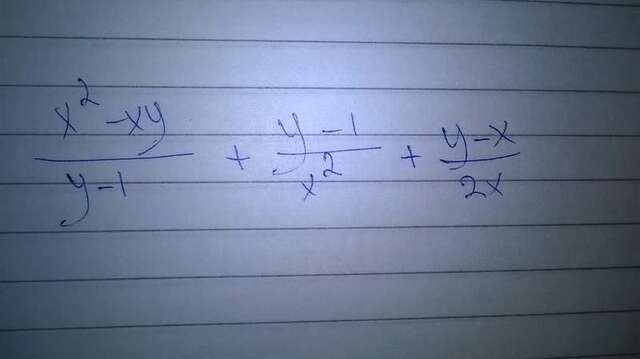 (x² - xy)/(y - 1) + (y - 1)/x² + (y - x)/2x